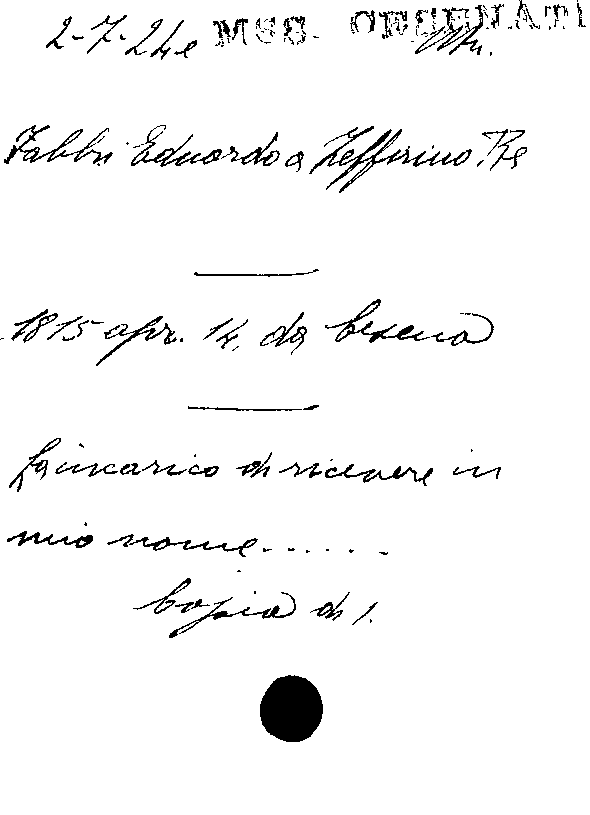 2-7-24 e MSS. CESENATI
Fabbri Eduardo a Zefferino Re
1815 apr. 14, da Cesena
L'incarico di ricevere in
mio nome......
Copia di l.